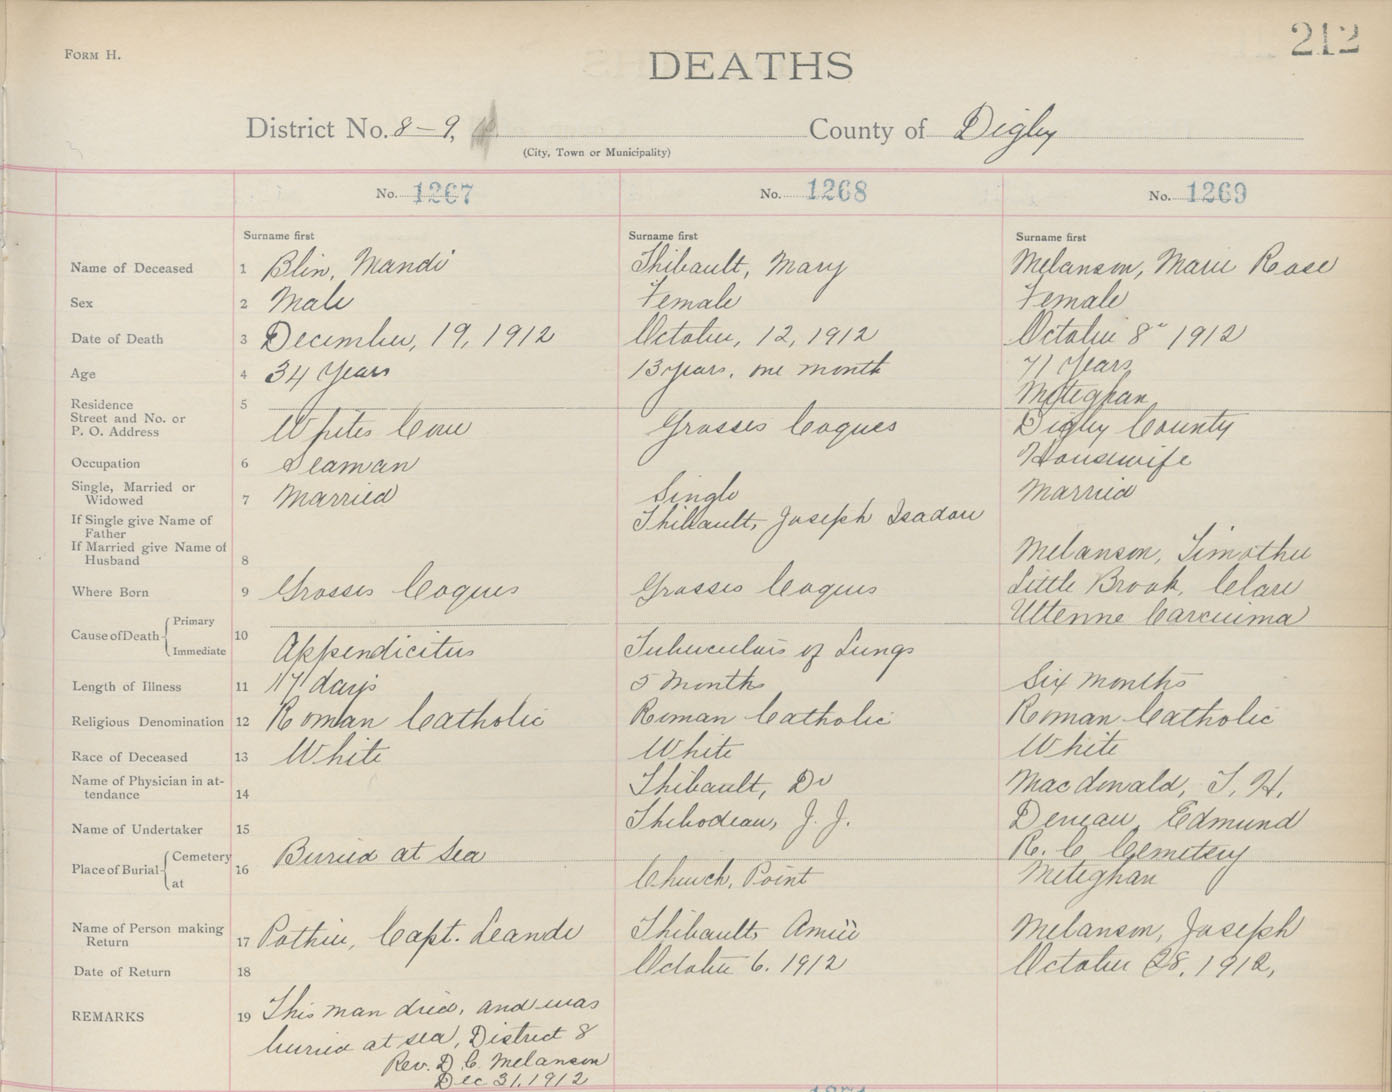 FORM H.
212
DEATHS
District No. 8-9, County of Digby
(City, Town or Municipality)
No. 1267 No. 1268 No. 1269
Surname first Surname first Surname first
Name of Deceased 1 Blin, Mandi Thibault, Mary Melanson, Marie Rose
Sex 2 Male Female Female
Date of Death 3 December, 19, 1912 October, 12, 1912 October 8" 1912
Age 4 34 Years 13 years, one month 71 Years
Residence 5 Meteghan
Street and No. or
P. O. Address Whites Cove Grosses Coques Digby County
Occupation 6 Seaman Housewife
Single, Married or
Widowed 7 Married Single Married
If Single give Name of
Father Thibault, Joseph Isadore
If Married give Name of
Husband 8 Melanson, Timothee
Where Born 9 Grosses Coques Grosses Coques Little Brook, Clare
Cause of Death Primary 10 Carcinima
Immediate Appendicitus Tuberculois of Lungs
Length of Illness 11 17 days 5 Months Six months
Religious Denomination 12 Roman Catholic Roman Catholic Roman Catholic
Race of Deceased 13 White White White
Name of Physician in at-
tendance 14 Thibault, Dr Macdonald, T. H.
Name of Undertaker 15 Thibodeau, J. J. Deveau, Edmund
Place of Burial Cemetery 16 Buried at Sea R. C Cemetery
at Church, Point Meteghan
Name of Person making
Return 17 Pothier, Capt. Leande Thibault, Melanson, Joseph
Date of Return 18 October 6. 1912 October 28, 1912,
REMARKS 19 This man died, and was
buried at sea, District 8
Rev. D. C. Melanson
Dec 31, 1912